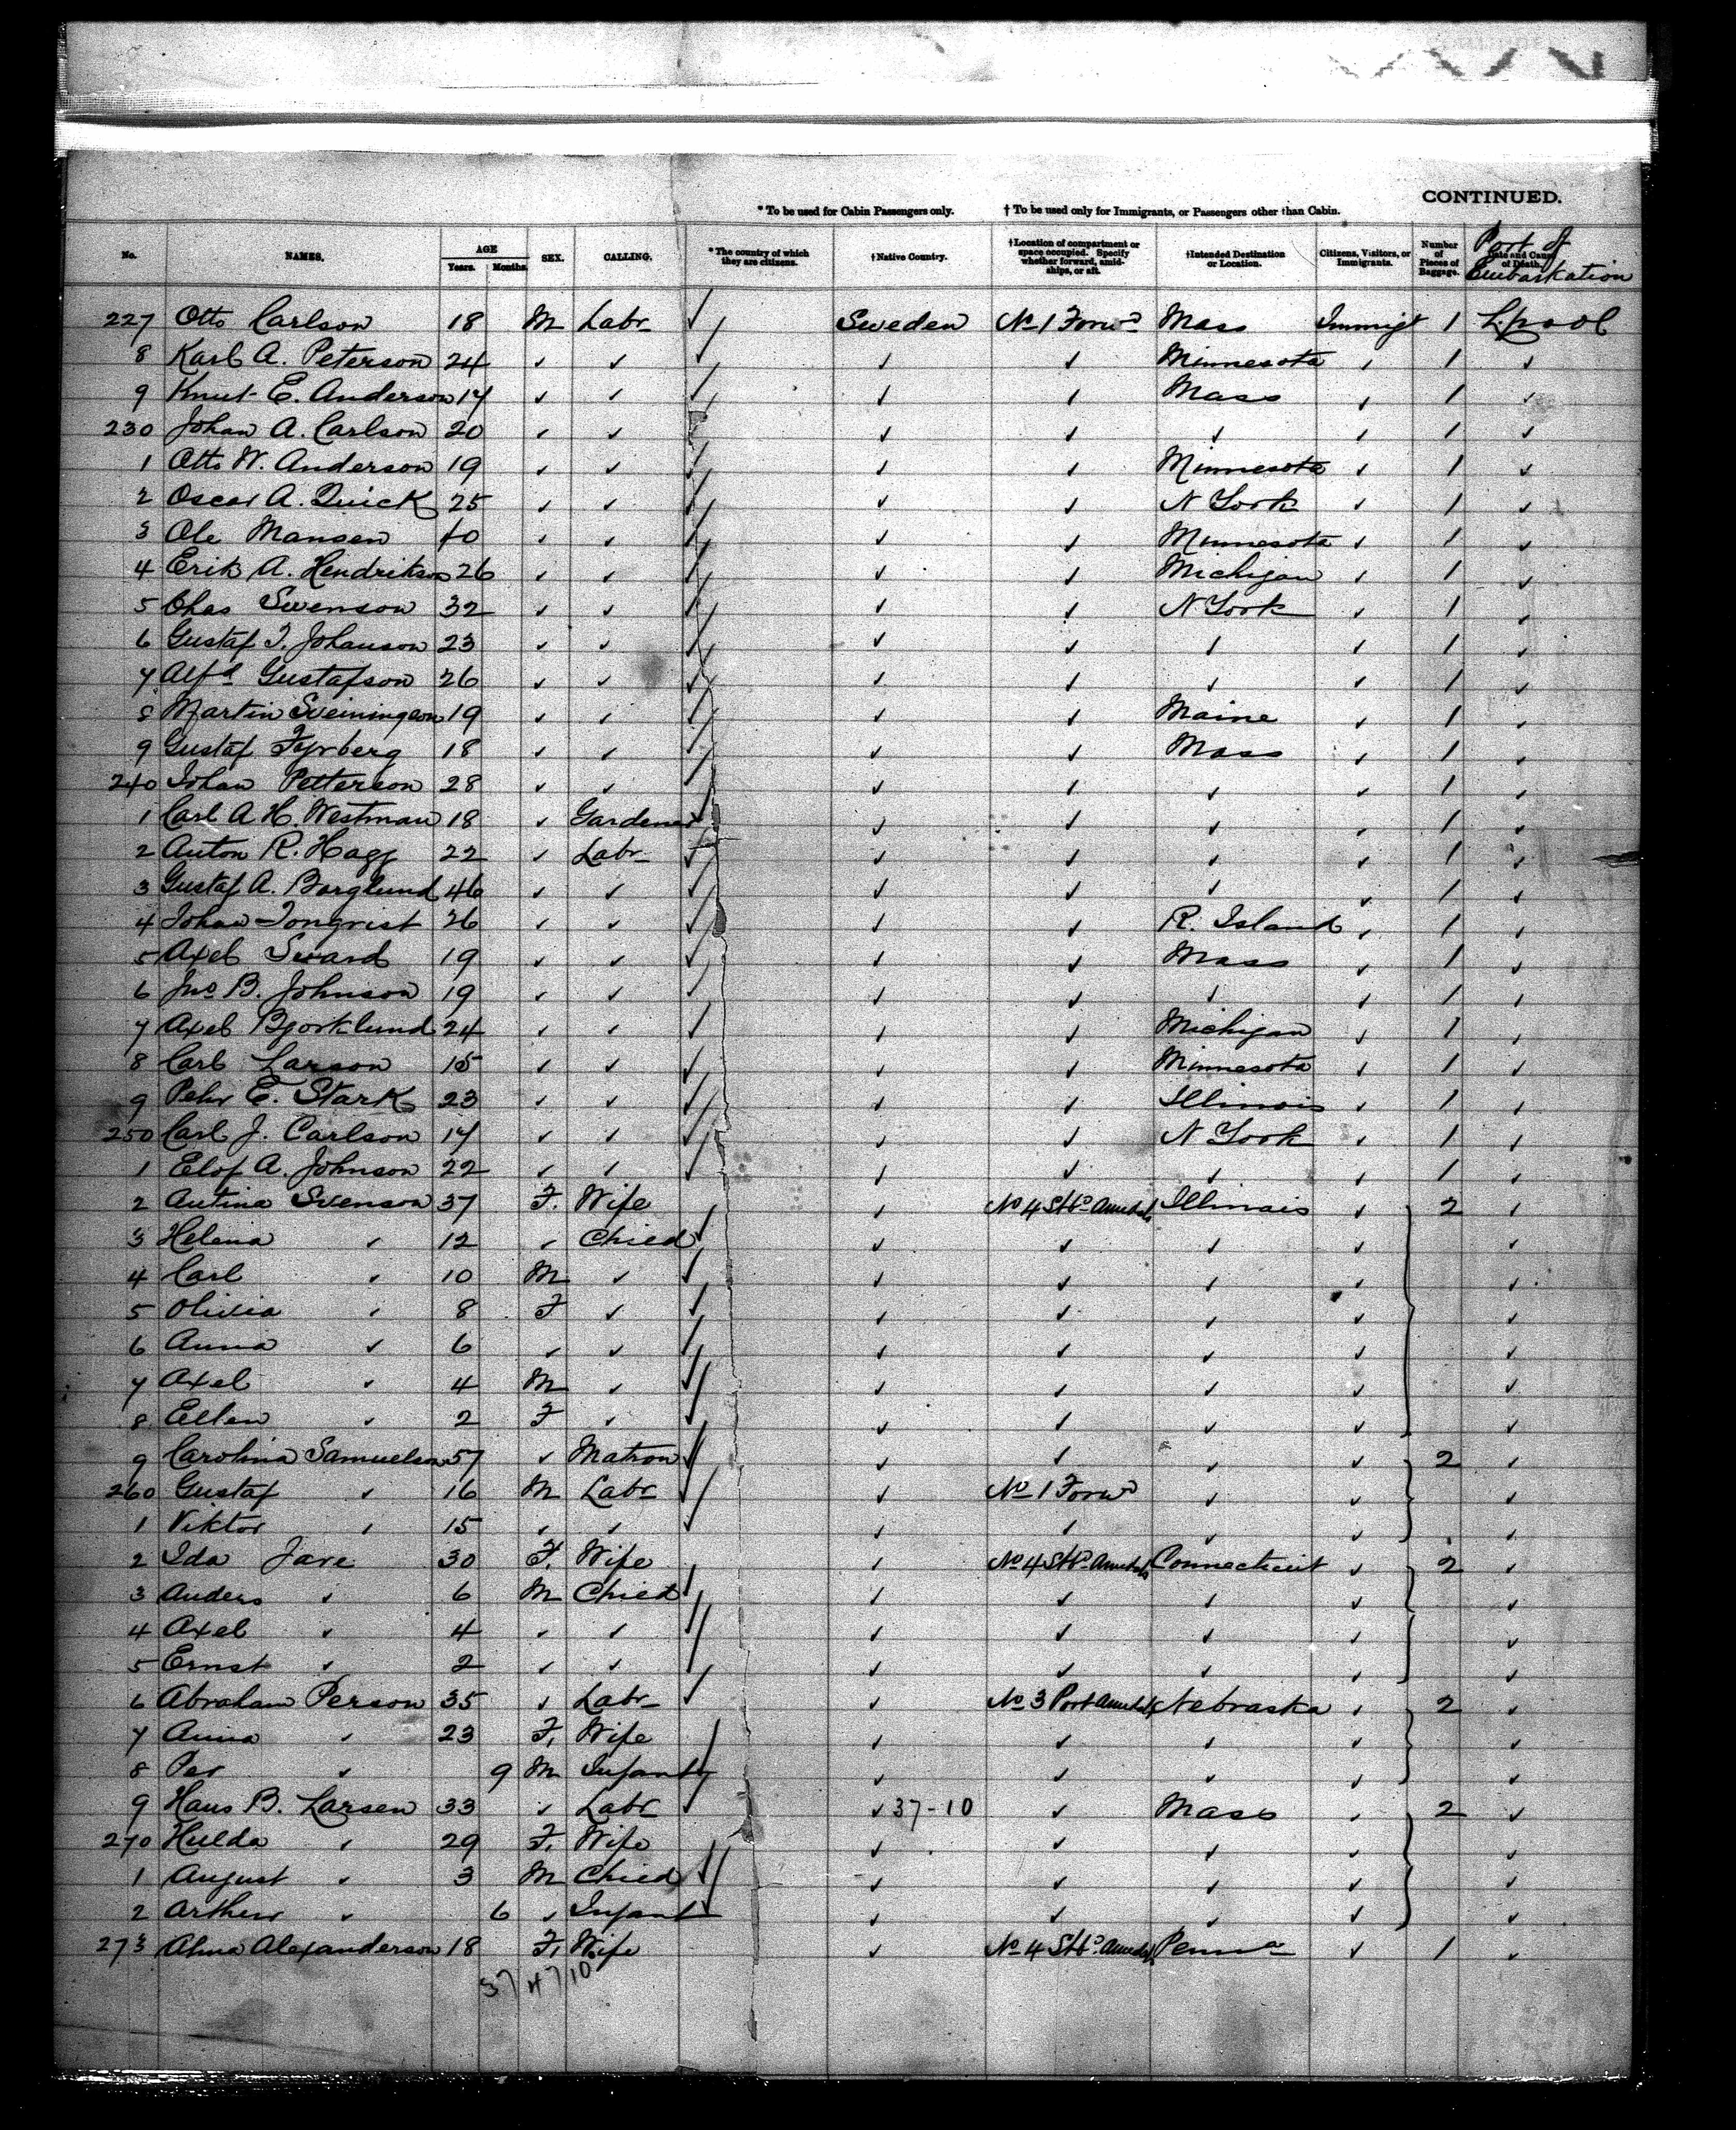 CONTINUED.
* To be used for Cabin Passengers only. † To be used only for Immigrants, or Passengers other than Cabin.
No. NAMES. AGE Years. Months. SEX. CALLING. * The country of which they are citizens. † Native Country. † Location of compartment or space occupied. Specify whether forward, amidships, or aft. † Intended Destination or Location. Citizens, Visitors, or Immigrants. Number of Pieces of Baggage. Date and Cause of Death. Port of Embarkation
227 Otto Carlson 18 M Labr ✓ Sweden No 1 Forwd Mass Immigt 1 L.pool
8 Karl A. Peterson 24 ✓ ✓ ✓ ✓ ✓ Minnesota ✓ 1 ✓
9 Knut E. Anderson 17 ✓ ✓ ✓ ✓ ✓ Mass ✓ 1 ✓
230 Johan A. Carlson 20 ✓ ✓ ✓ ✓ ✓ ✓ 1 ✓
1 Otto W. Anderson 19 ✓ ✓ ✓ ✓ ✓ Minnesota ✓ 1 ✓
2 Oscar A. Quick 25 ✓ ✓ ✓ ✓ ✓ N York ✓ 1 ✓
3 Ole Mansen 40 ✓ ✓ ✓ ✓ ✓ Minnesota ✓ 1 ✓
4 Erik A. Hendrikson 26 ✓ ✓ ✓ ✓ ✓ Michigan ✓ 1 ✓
5 Chas Swenson 32 ✓ ✓ ✓ ✓ ✓ N York ✓ 1 ✓
6 Gustaf T. Johanson 23 ✓ ✓ ✓ ✓ ✓ ✓ ✓ 1 ✓
7 Alfd Gustafson 26 ✓ ✓ ✓ ✓ ✓ ✓ ✓ 1 ✓
8 Martin Sveiningson 19 ✓ ✓ ✓ ✓ ✓ Maine ✓ 1 ✓
9 Gustaf Fyrberg 18 ✓ ✓ ✓ ✓ ✓ Mass ✓ 1 ✓
240 Johan Petterson 28 ✓ ✓ ✓ ✓ ✓ ✓ ✓ 1 ✓
1 Carl A H. Westman 18 ✓ Gardener ✓ ✓ ✓ ✓ ✓ 1 ✓
2 Anton R. Hagg 22 ✓ Labr ✓ ✓ ✓ ✓ ✓ 1 ✓
3 Gustaf A. Borglund 46 ✓ ✓ ✓ ✓ ✓ ✓ ✓ 1 ✓
4 Johan Tonqrist 26 ✓ ✓ ✓ ✓ ✓ R. Island ✓ 1 ✓
5 Axel Sward 19 ✓ ✓ ✓ ✓ ✓ Mass ✓ 1 ✓
6 Jno B. Johnson 19 ✓ ✓ ✓ ✓ ✓ ✓ ✓ 1 ✓
7 Axel Bjorklund 24 ✓ ✓ ✓ ✓ ✓ Michigan ✓ 1 ✓
8 Carl Larson 15 ✓ ✓ ✓ ✓ ✓ Minnesota ✓ 1 ✓
9 Pehr E. Stark 23 ✓ ✓ ✓ ✓ ✓ Illinois ✓ 1 ✓
250 Carl J. Carlson 17 ✓ ✓ ✓ ✓ ✓ N York ✓ 1 ✓
1 Elof A. Johnson 22 ✓ ✓ ✓ ✓ ✓ ✓ ✓ 1 ✓
2 Antina Svenson 37 F. Wife ✓ No 4 Stbd Amidsh Illinois ✓ 2 ✓
3 Helena ✓ 12 ✓ Child ✓ ✓ ✓ ✓ ✓ ✓
4 Carl ✓ 10 M ✓ ✓ ✓ ✓ ✓ ✓ ✓
5 Olivia ✓ 8 F ✓ ✓ ✓ ✓ ✓ ✓ ✓
6 Anna ✓ 6 ✓ ✓ ✓ ✓ ✓ ✓ ✓ ✓
7 Axel ✓ 4 M ✓ ✓ ✓ ✓ ✓ ✓ ✓
8 Ellen ✓ 2 F ✓ ✓ ✓ ✓ ✓ ✓ ✓
9 Carolina Samuelson 57 ✓ Matron ✓ ✓ ✓ ✓ ✓ 2 ✓
260 Gustaf ✓ 16 M Labr ✓ ✓ No 1 Forwd ✓ ✓ ✓
1 Viktor ✓ 15 ✓ ✓ ✓ ✓ ✓ ✓ ✓ ✓
2 Ida Jare 30 F. Wife ✓ No 4 Stbd Amidsh Connecticut ✓ 2 ✓
3 Anders ✓ 6 M Child ✓ ✓ ✓ ✓ ✓ ✓
4 Axel ✓ 4 ✓ ✓ ✓ ✓ ✓ ✓ ✓ ✓
5 Ernst ✓ 2 ✓ ✓ ✓ ✓ ✓ ✓ ✓ ✓
6 Abraham Person 35 ✓ Labr ✓ ✓ No 3 Port Amidsh Nebraska ✓ 2 ✓
7 Anna ✓ 23 F. Wife ✓ ✓ ✓ ✓ ✓ ✓
8 Per ✓ 9 M Infant ✓ ✓ ✓ ✓ ✓ ✓
9 Hans B. Larsen 33 ✓ Labr ✓ ✓ 37-10 ✓ Mass ✓ 2 ✓
270 Hulda ✓ 29 F. Wife ✓ ✓ ✓ ✓ ✓
1 August ✓ 3 M Child ✓ ✓ ✓ ✓ ✓ ✓
2 Arthur ✓ 6 ✓ Infant ✓ ✓ ✓ ✓ ✓ ✓
273 Alma Alexanderson 18 F. Wife ✓ No 4 Stbd Amidsh Penna ✓ 1 ✓
37 47 10